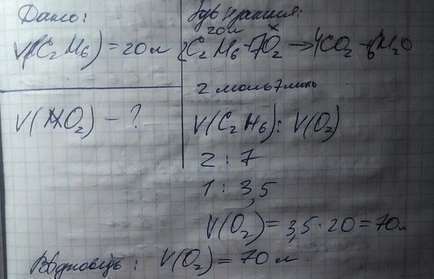 Дано:
V(C₂H₆) = 20л
V(O₂) - ?
20л x
2C₂H₆ + 7O₂ → 4CO₂ + 6H₂O
2 моль 7 моль
V(C₂H₆) : V(O₂)
2 : 7
1 : 3,5
V(O₂) = 3,5 · 20 = 70л
Відповідь: V(O₂) = 70 л